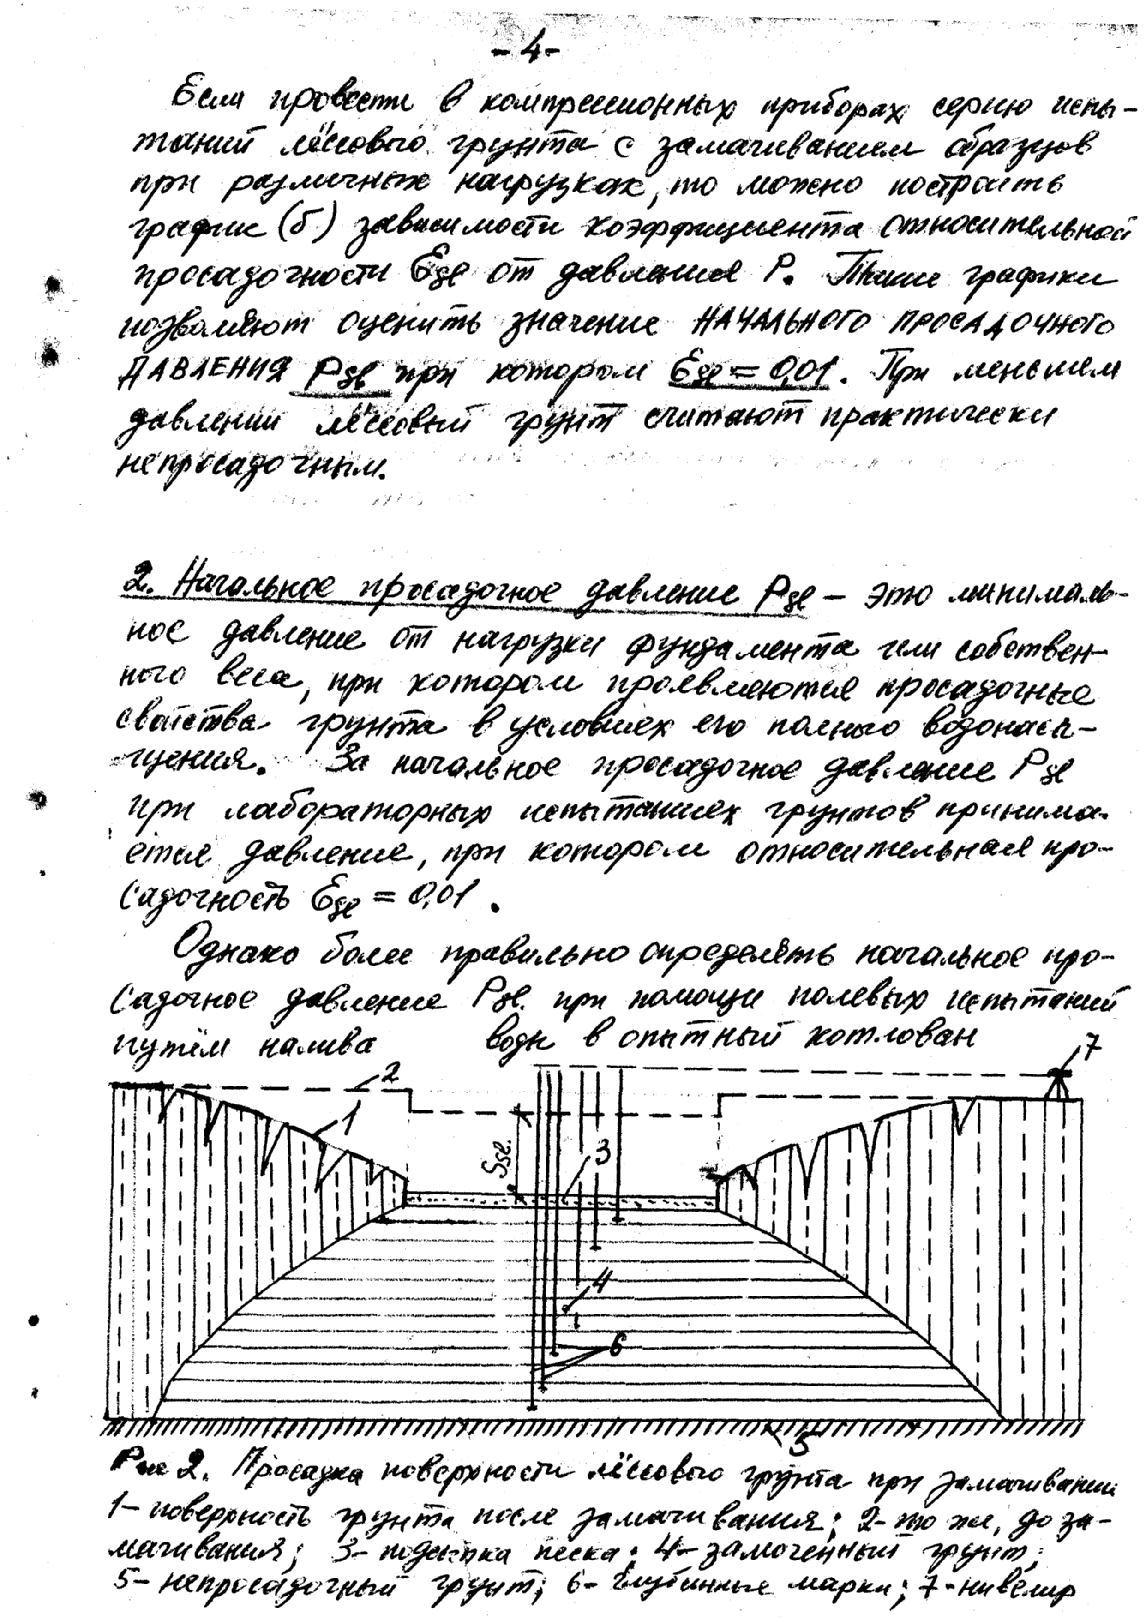 - 4 -
Если провести в компрессионных приборах серию испы-
таний лёссового грунта с замачиванием образцов
при различных нагрузках, то можно построить
график (б) зависимости коэффициента относительной
просадочности Ɛsl от давления P. Такие графики
позволяют оценить значение НАЧАЛЬНОГО ПРОСАДОЧНОГО
ДАВЛЕНИЯ Psl при котором Ɛsl = 0,01. При меньшем
давлении лёссовый грунт считают практически
непросадочным.
2. Начальное просадочное давление Psl – это минималь-
ное давление от нагрузки фундамента или собствен-
ного веса, при котором проявляются просадочные
свойства грунта в условиях его полного водонасы-
щения. За начальное просадочное давление Psl
при лабораторных испытаниях грунтов принима-
ется давление, при котором относительная про-
садочность Ɛsl = 0,01.
Однако более правильно определять начальное про-
садочное давление Psl при помощи полевых испытаний
путём налива воды в опытный котлован
7
2
1
Ssl
3
4
6
5
Рис 2. Просадка поверхности лёссового грунта при замачивании
1– поверность грунта после замачивания; 2– то же, до за-
мачивания; 3– подсыпка песка; 4– замоченный грунт;
5– непросадочный грунт; 6– глубинные марки; 7– нивелир